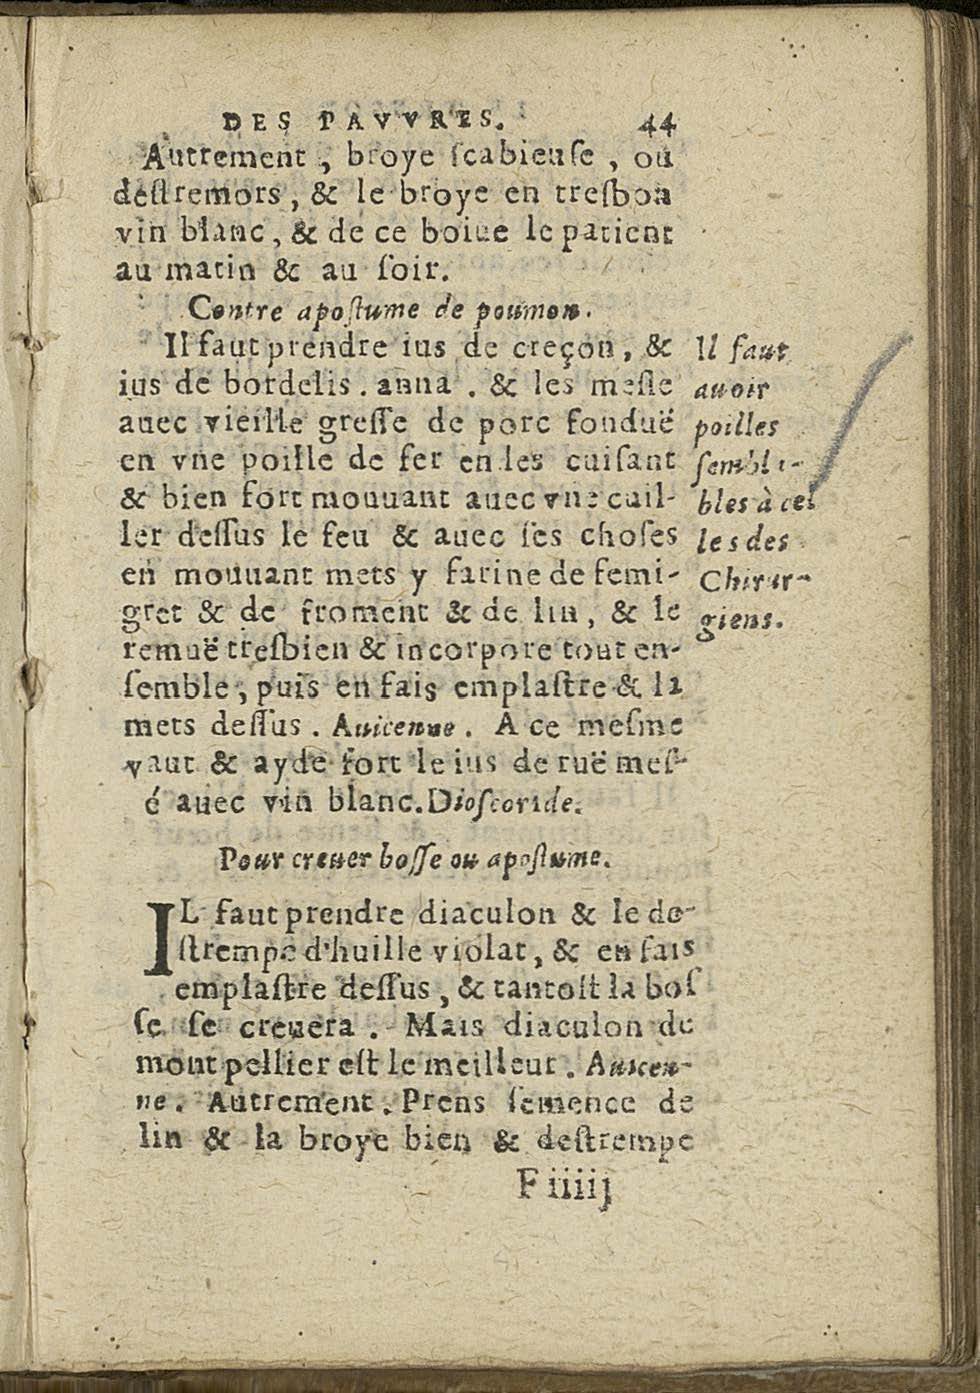 DES PAVVRES. 44
Autrement, broye ſcabieuſe, ou
deſtremors, & le broye en treſbon
vin blanc, & de ce boiue le patient
au matin & au ſoir.
Contre apoſtume de poumon.
Il faut prendre ius de creçon, &
ius de bordelis. anna. & les meſle
auec vieille greſſe de porc fonduë
en vne poille de fer en les cuiſant
& bien fort mouuant auec vne cuil-
ler deſſus le feu & auec ſes choſes
en mouuant mets y farine de femi-
gret & de froment & de lin, & le
remuë treſbien & incorpore tout en-
ſemble, puis en fais emplaſtre & la
mets deſſus. Auicenne. A ce meſme
vaut & ayde fort le ius de ruë meſ-
é auec vin blanc. Dioſcoride.
Il faut
auoir
poilles
ſembla-
bles à cel
les des
Chirur-
giens.
Pour creuer boſſe ou apoſtume.
IL faut prendre diaculon & le de-
ſtrempe d'huille violat, & en fais
emplaſtre deſſus, & tantoſt la boſ
ſe ſe creuera. Mais diaculon de
montpellier eſt le meilleur. Auicen-
ne. Autrement. Prens ſemence de
lin & la broye bien & deſtrempe
F iiiij